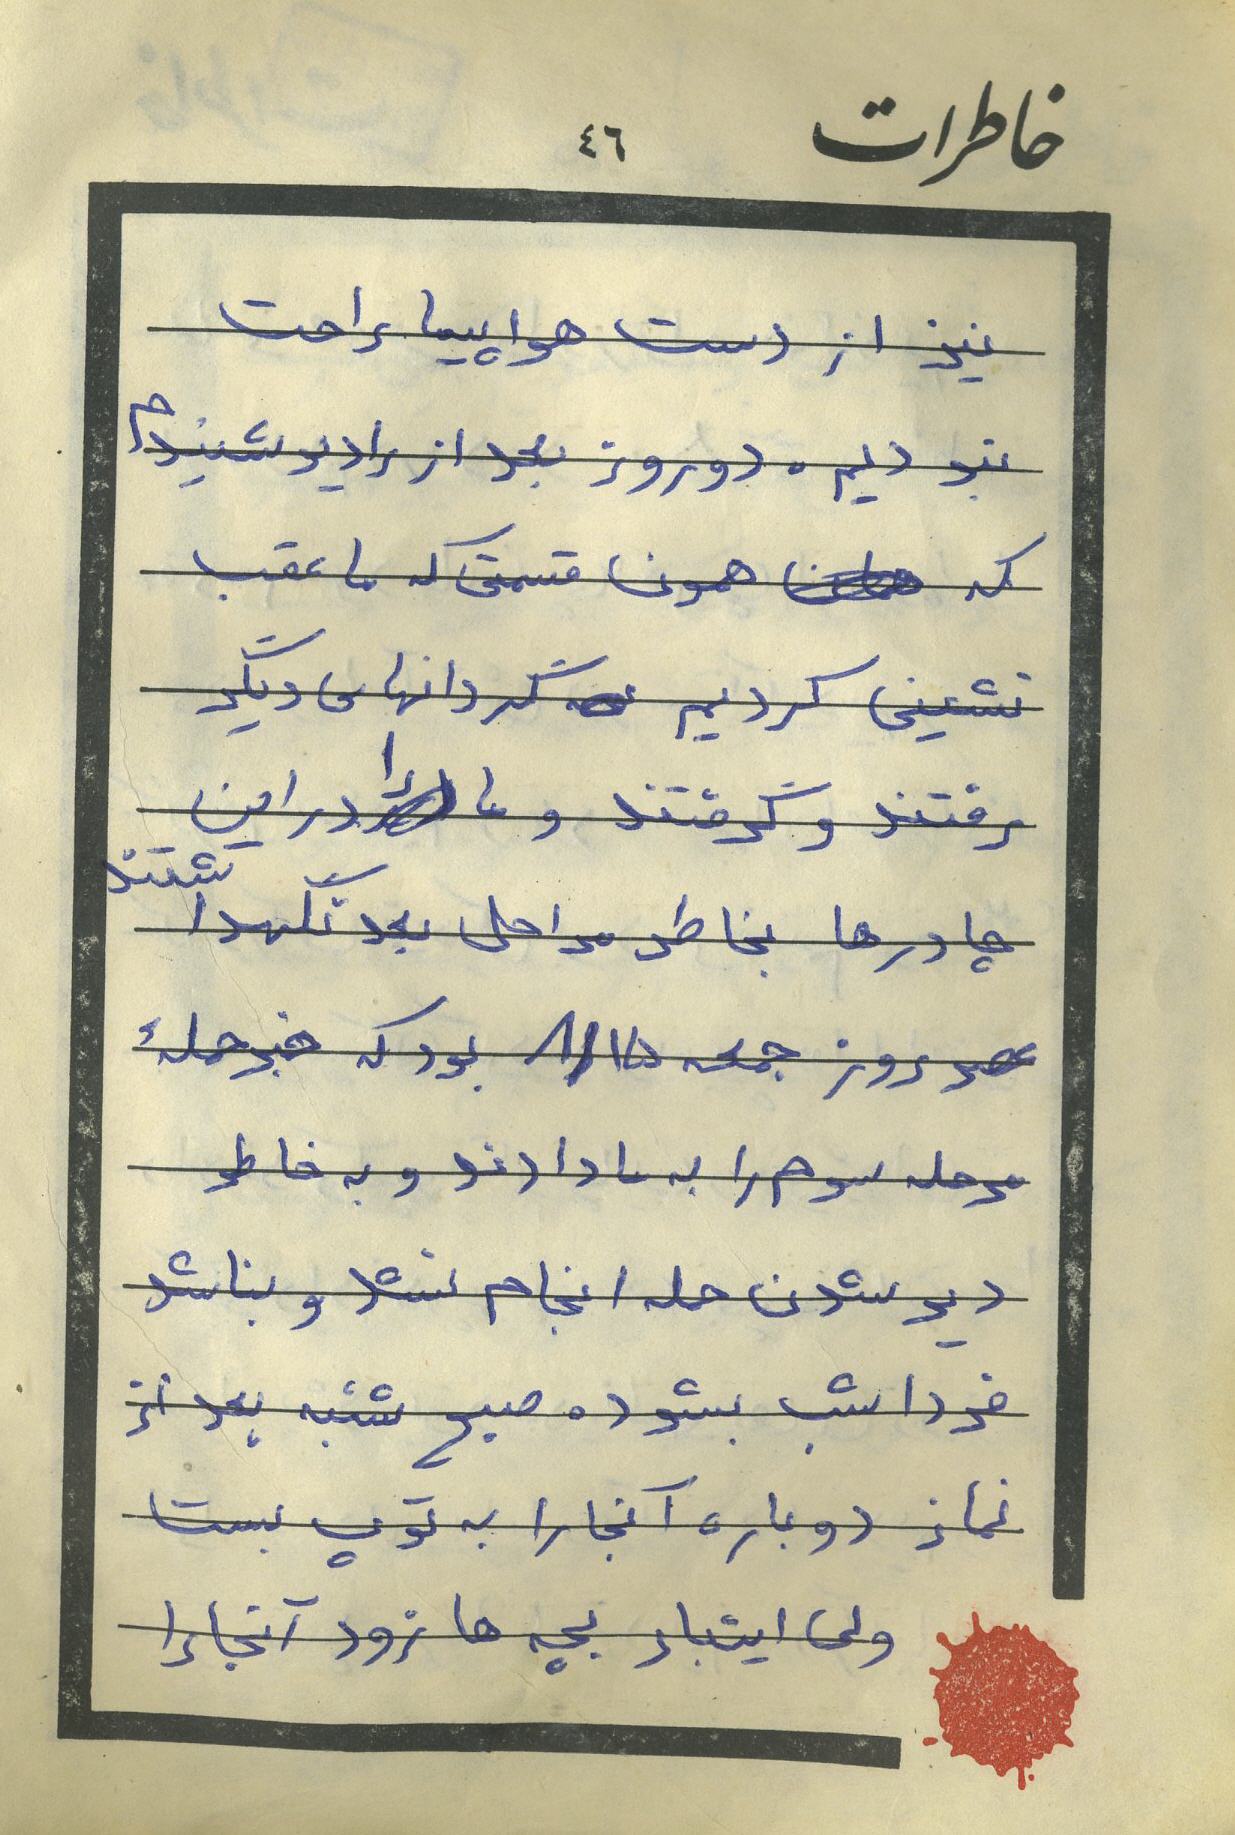 خاطرات
٤٦
نیز از دست هواپیما راحت
نبودیم. دو روز بعد از رادیو شنیدم
که همون قسمتی که ما عقب
نشینی کردیم گردانهای دیگر
رفتند و گرفتند و ما را در این
چادرها بخاطر مراحل بعد نگهداشتند
عصر روز جمعه ۸/۱۵ بود که خبر حملهٔ
مرحله سوم را به ما دادند و به خاطر
دیر شدن حمله انجام نشد و بنا شد
فردا شب بشود. صبح شنبه بعد از
نماز دوباره آنجا را به توپ بست
ولی اینبار بچه ها زود آنجا را